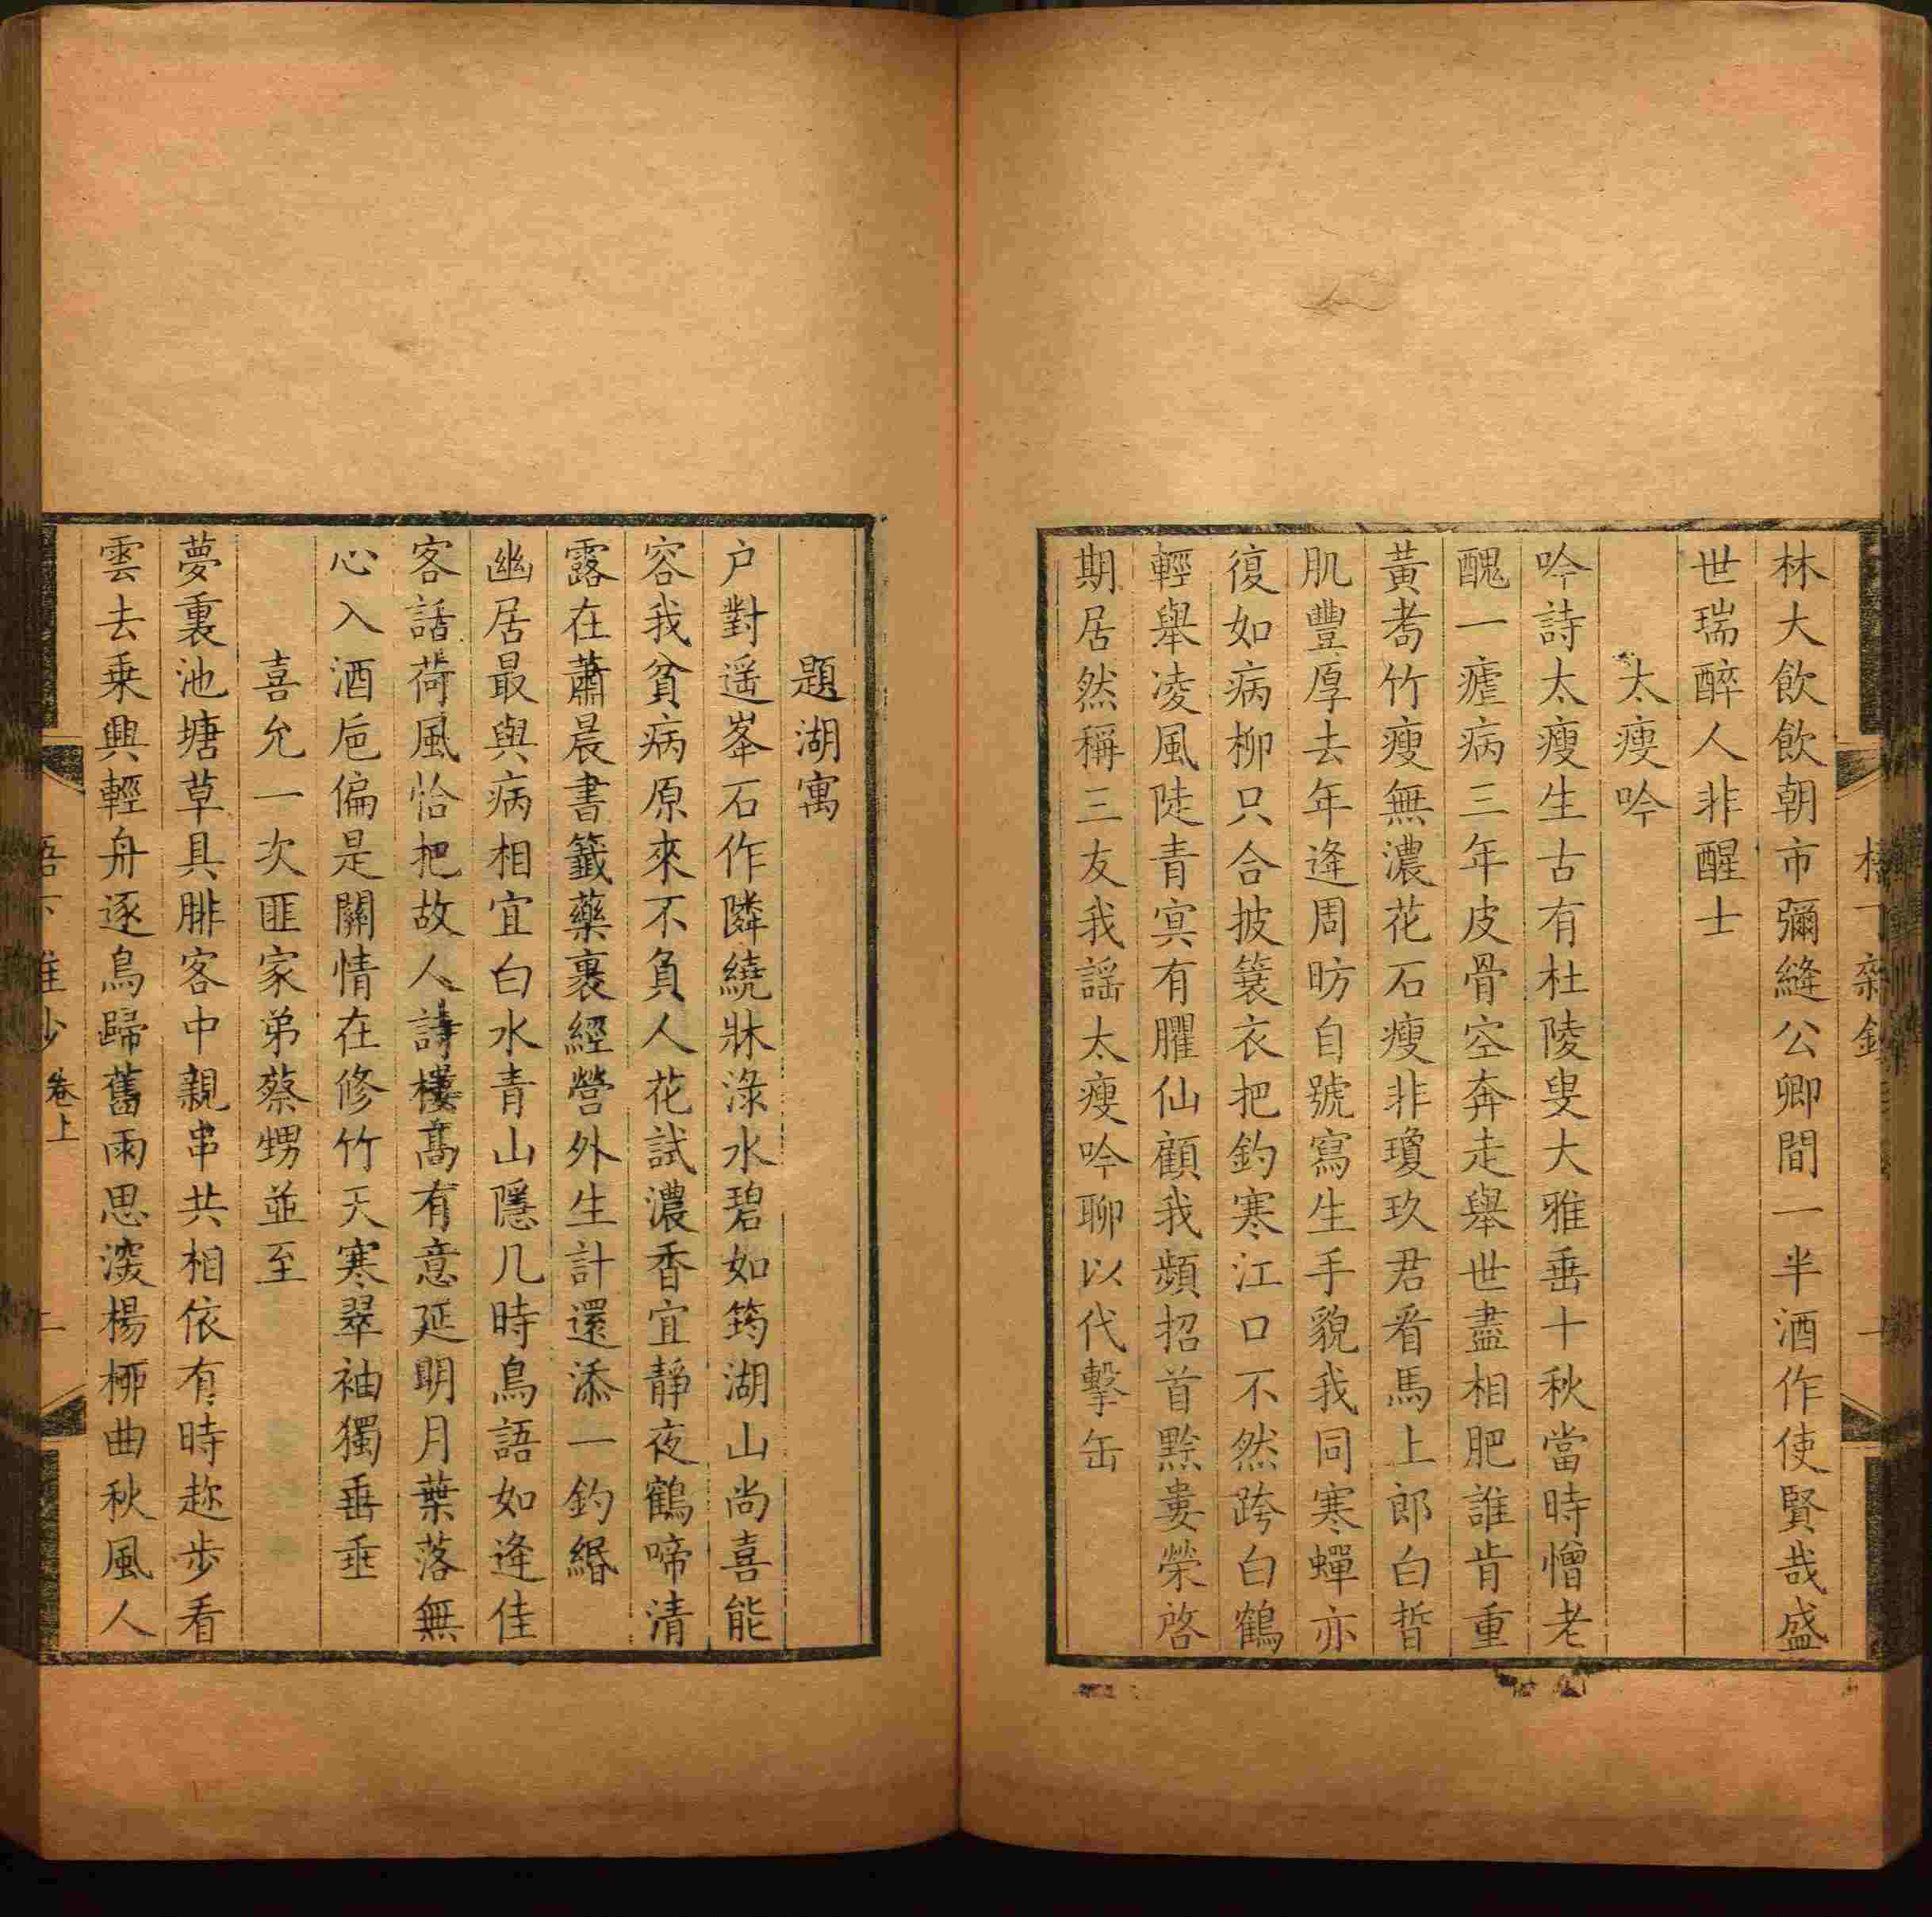 林大飲飲朝市彌縫公卿間一半酒作使賢哉盛
世瑞醉人非醒士
太瘦吟
吟詩太瘦生古有杜陵叟大雅垂十秋當時憎老
醜一瘧病三年皮骨空奔走舉世盡相肥誰肯重
黃耉竹瘦無濃花石瘦非瓊玖君看馬上郎白晳
肌豐厚去年逢周昉自號寫生手貌我同寒蟬亦
復如病柳只合披簑衣把釣寒江口不然跨白鶴
輕舉凌風陡青冥有臞仙顧我頻招首黔婁榮啓
期居然稱三友我謡太瘦吟聊以代擊缶
題湖寓
户對遥峯石作隣繞牀渌水碧如筠湖山尚喜能
容我貧病原來不負人花試濃香宜靜夜鶴啼清
露在蕭晨書籤藥裹經營外生計還添一釣緡
幽居最與病相宜白水青山隱几時鳥語如逢佳
客話荷風恰把故人詩樓高有意延明月葉落無
心入酒巵偏是關情在修竹天寒翠袖獨垂垂
喜允一次匪家弟蔡甥並至
夢裏池塘草具腓客中親串共相依有時趂步看
雲去乗興輕舟逐鳥歸舊雨思深楊桺曲秋風人
卷上